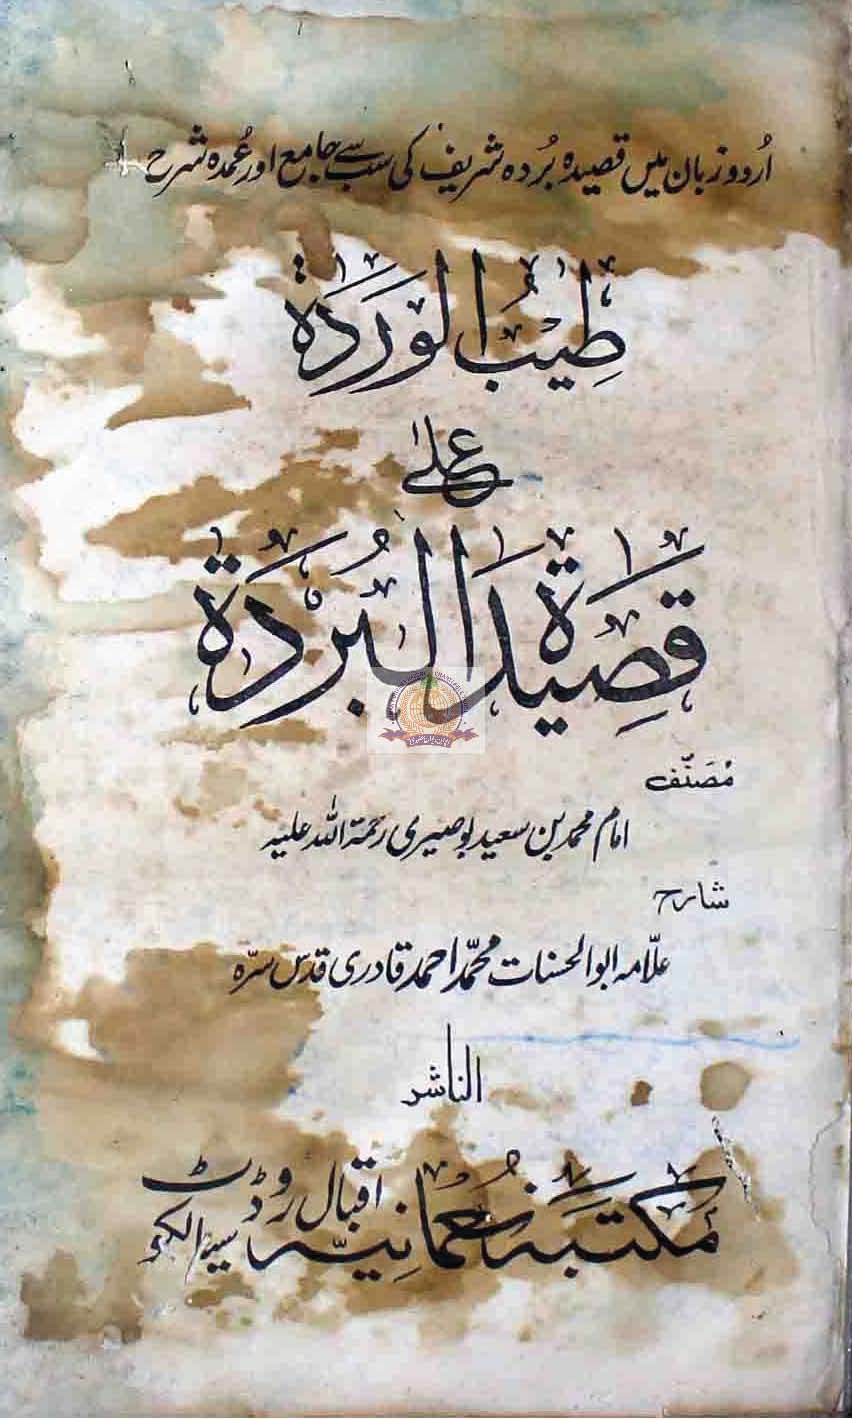 اُردو زبان میں قصیدہ بُردہ شریف کی سب سے جامع اور عُمدہ شرح
طِیْبُ الْوَرْدَۃ
عَلٰی
قَصِیْدَۃ الْبُرْدَۃ
مُصَنّف
امام محمد بن سعید بوصیری رحمۃ اللہ علیہ
شارح
علّامہ ابوالحسنات محمّد احمد قادری قدس سرّہ
الناشر
مکتبہ نعمانیہ اقبال روڈ سیالکوٹ